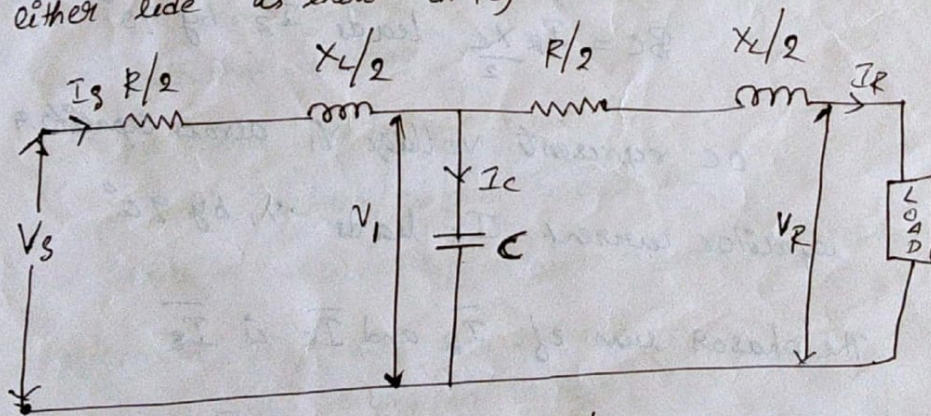 either side as
R/2 X_L/2 R/2 X_L/2
I_S I_R
I_C
V_S V_1 C V_R LOAD